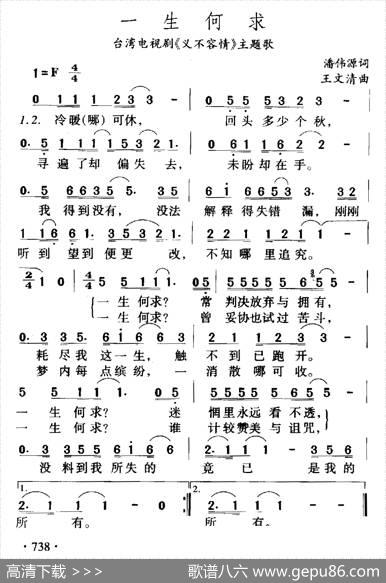 一生何求
台湾电视剧《义不容情》主题歌
1=F 4/4
潘伟源词
王文清曲
0 1 1 1 2 3 3 0 5 5 5 3 2 1
1.2. 冷暖(哪)可休, 回头多少个秋,
0. 5 1 1 1 1 5. 5 5 0 6 1 1 6 2 2
寻遍了却 偏失去, 未盼却在手。
0. 5 6 6 3 5 5. 3 5 6 1 6 5 6 5 3. 3 2
我得到没有, 没法 解释得失错漏, 刚刚
1 1 1 6 6 1 3. 3 2 2 2 1 2 1 1
听到 望到便更 改, 不知哪里追究。
2/4 1 0 4/4 5 5 1 1 1. 0 5
一生何求? 常 判决放弃与拥有,
一生何求? 曾 妥协也试过苦斗,
0. 3 3 3 5 6 1 6. 5 2. 1 2 1 1 1
耗尽我这一生, 触 不到已跑开。
梦内每点缤纷, 一 消散哪可收。
5 5 1 1 1. 0 5
一生何求? 迷 惘里永远看不透,
一生何求? 谁 计较赞美与诅咒,
没料到我所失的 竟已是我的
1. 2.
2. 1 1 1 2. 1 1 1
所有。 所有。
·738·
高清下载 | 歌谱八六 www.gepu86.com